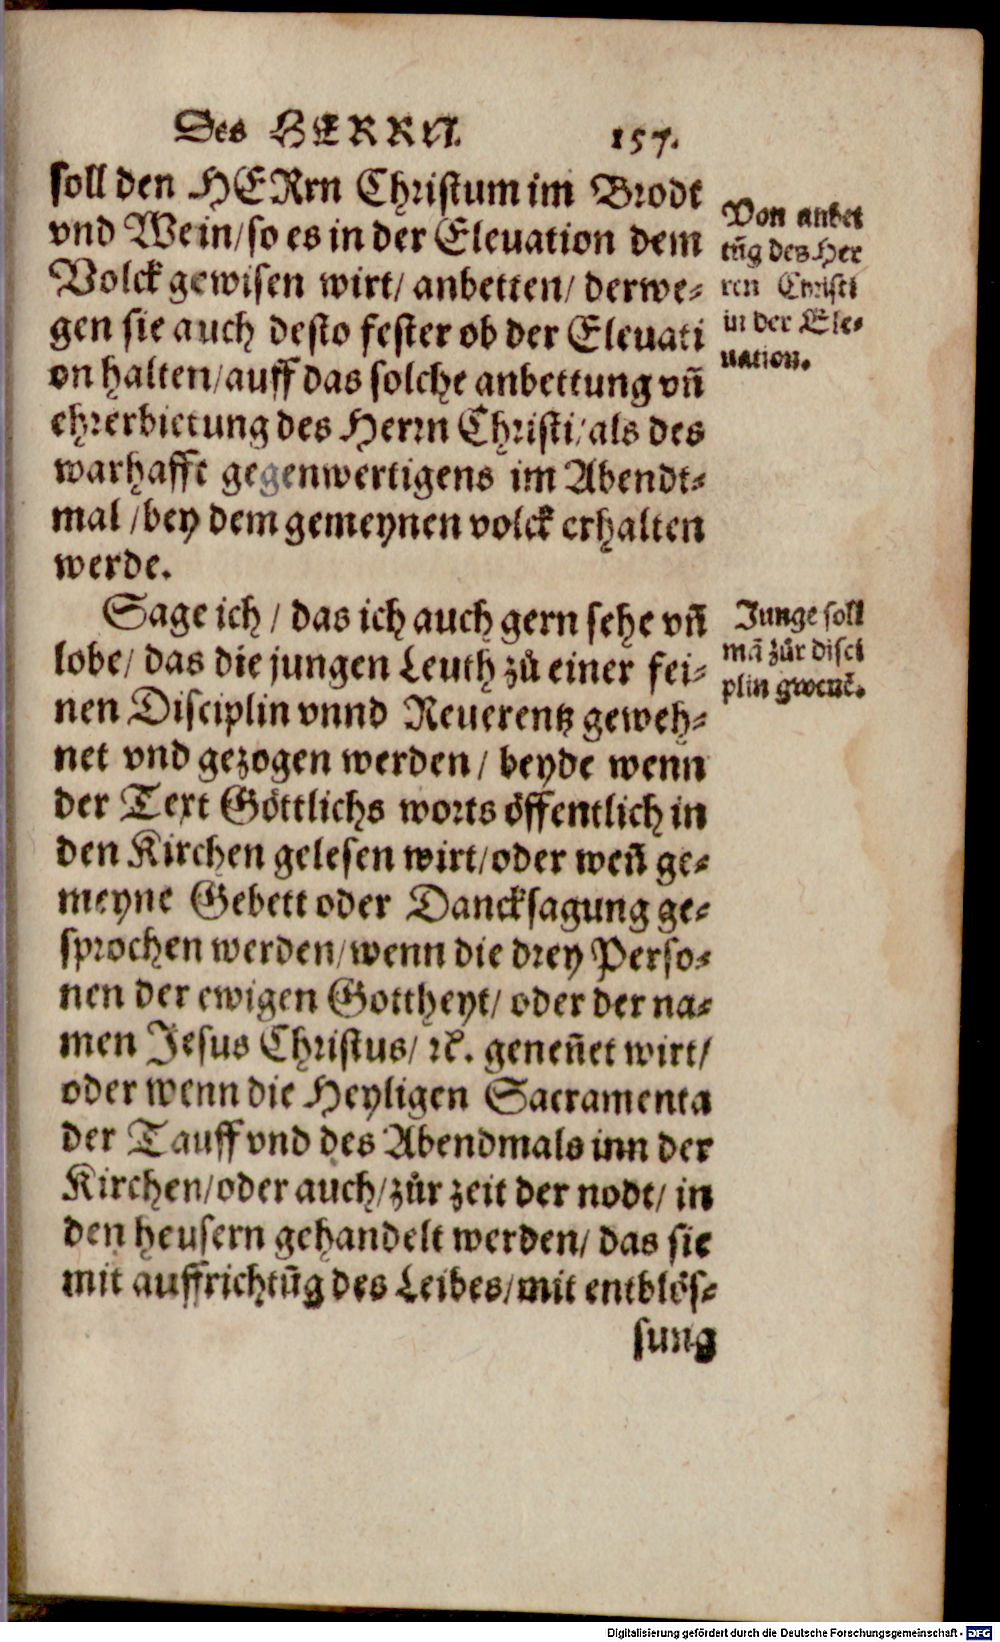 Des HERRN. 157.
soll den HERrn Christum im Brodt
vnd Wein/so es in der Eleuation dem
Volck gewisen wirt/ anbetten/ derwe-
gen sie auch desto fester ob der Eleuati
on halten/auff das solche anbettung vn̄
ehrerbietung des Herrn Christi/als des
warhafft gegenwertigens im Abendt-
mal/bey dem gemeynen volck erhalten
werde.
Von anbet
tūg des Her
ren Christi
in der Ele-
uation.
Sage ich/ das ich auch gern sehe vn̄
lobe/ das die jungen Leuth zů einer fei-
nen Disciplin vnnd Reuerentz geweh-
net vnd gezogen werden/ beyde wenn
der Text Göttlichs worts öffentlich in
den Kirchen gelesen wirt/oder wen̄ ge-
meyne Gebett oder Dancksagung ge-
sprochen werden/wenn die drey Perso-
nen der ewigen Gottheyt/ oder der na-
men Jesus Christus/ ꝛc. genen̄et wirt/
oder wenn die Heyligen Sacramenta
der Tauff vnd des Abendmals inn der
Kirchen/oder auch/zůr zeit der nodt/ in
den heusern gehandelt werden/ das sie
mit auffrichtūg des Leibes/mit entblös-
sung
Junge soll
mā zůr disci
plin gwenē.
Digitalisierung gefördert durch die Deutsche Forschungsgemeinschaft - DFG